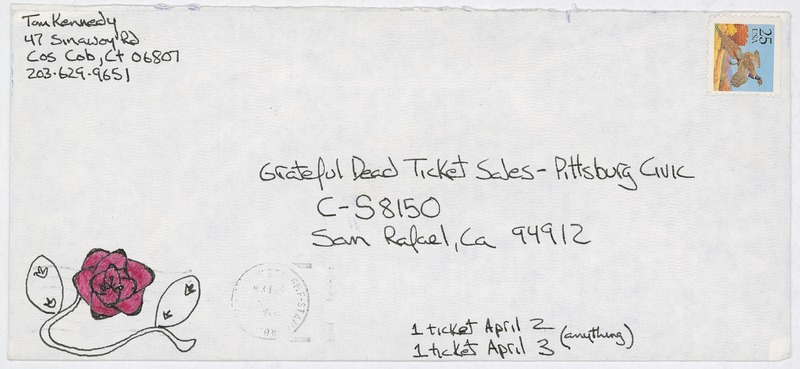 Tom Kennedy
47 Sinawoy Rd
Cos Cob, Ct 06807
203·629·9651
25
USA
Grateful Dead Ticket Sales - Pittsburg Civic
C-S 8150
San Rafael, Ca 94912
1 ticket April 2
1 ticket April 3 (anything)